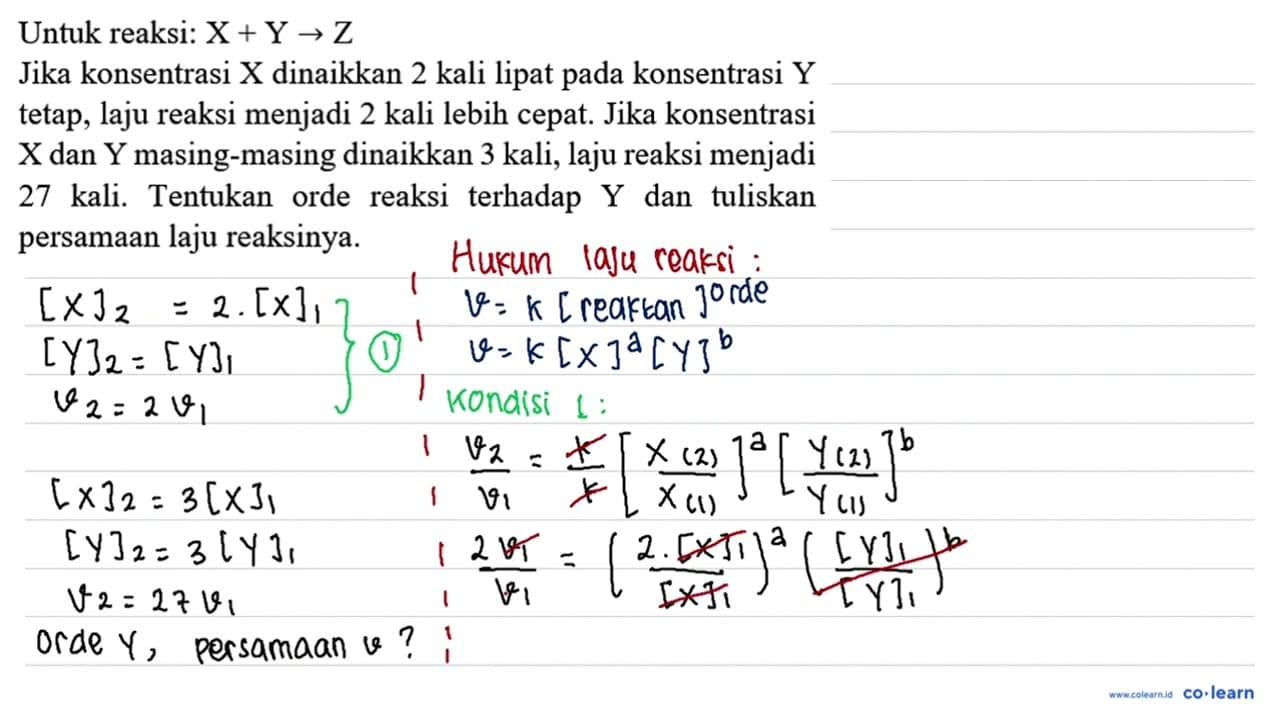 Untuk reaksi: X + Y → Z
Jika konsentrasi X dinaikkan 2 kali lipat pada konsentrasi Y
tetap, laju reaksi menjadi 2 kali lebih cepat. Jika konsentrasi
X dan Y masing-masing dinaikkan 3 kali, laju reaksi menjadi
27 kali. Tentukan orde reaksi terhadap Y dan tuliskan
persamaan laju reaksinya.
[X]2 = 2.[X]1
[Y]2 = [Y]1
v2 = 2 v1
①
[X]2 = 3[X]1
[Y]2 = 3[Y]1
v2 = 27 v1
orde Y, persamaan v ?
Hukum laju reaksi :
v = k [reaktan]^orde
v = k [X]^a [Y]^b
Kondisi 1 :
v2/v1 = k/k [X(2)/X(1)]^a [Y(2)/Y(1)]^b
2v1/v1 = (2.[X]1/[X]1)^a ([Y]1/[Y]1)^b
www.colearn.id co·learn